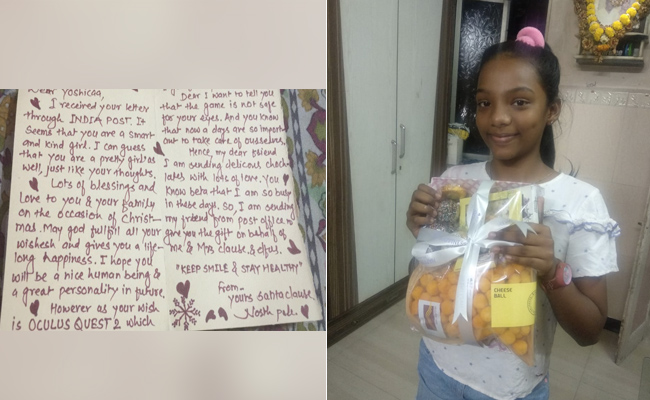 Dear Yoshicaa,
I received your letter
through INDIA POST. It
Seems that you are a smart
and kind girl. I can guess
that you are a pretty girl as
well, just like your thoughts.
Lots of blessings and
Love to you & your family
on the occasion of Christ-
mas. May god fullfill all your
wishesh and gives you a life-
long happiness. I hope you
will be a nice human being &
a great personality in future.
However as your wish
is OCULUS QUEST 2 which
Dear I want to tell you
that the game is not safe
for your eyes. And you know
that now a days are so import
ant to take care of ourselves.
Hence, my dear friend
I am sending delicious choco
lates with lots of love. You
know beta that I am so busy
in these days. So, I am sending
my friend from post office to
give you the gift on behalf of
me & Mrs clause, & elfus.
"KEEP SMILE & STAY HEALTHY"
from-
yours Santaclause
North pole
CHEESE
BALL